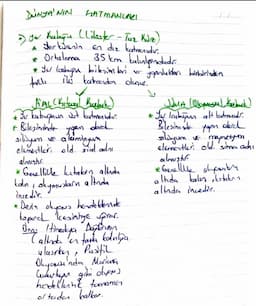 DÜNYA'NIN KATMANLARI
Yer Kabuğu (Litosfer - Taş Küre)
★ Yerkürenin en dış katmanıdır.
★ Ortalama 35 km kalınlığındadır.
★ Yer kabuğu bileşimleri ve yoğunlukları birbirinden
farklı iki katmandan oluşur.
SİAL (Kıtasal Kabuk)
★ Yer kabuğunun üst katmanıdır.
★ Bileşiminde yoğun olarak
silisyum ve alüminyum
elementleri old. sial adını
almıştır.
★ Genellikle kıtaların altında
kalın, okyanusların altında
incedir.
★ Derin okyanus hendeklerinde
kesintiye uğrar.
altında en fazla kalınlığa
ulaşırken, Pasifik
Okyanusu'nda Mariana
Çukurluğu gibi derin
hendeklerde tamamen
ortadan kalkar.
SİMA (Okyanusal Kabuk)
★ Yer kabuğunun alt katmanıdır.
Bileşiminde yoğun olarak
silisyum ve magnezyum
elementleri old. sima adını
almıştır.
★ Genellikle okyanusların
altında kalın kıtaların
altında incedir.